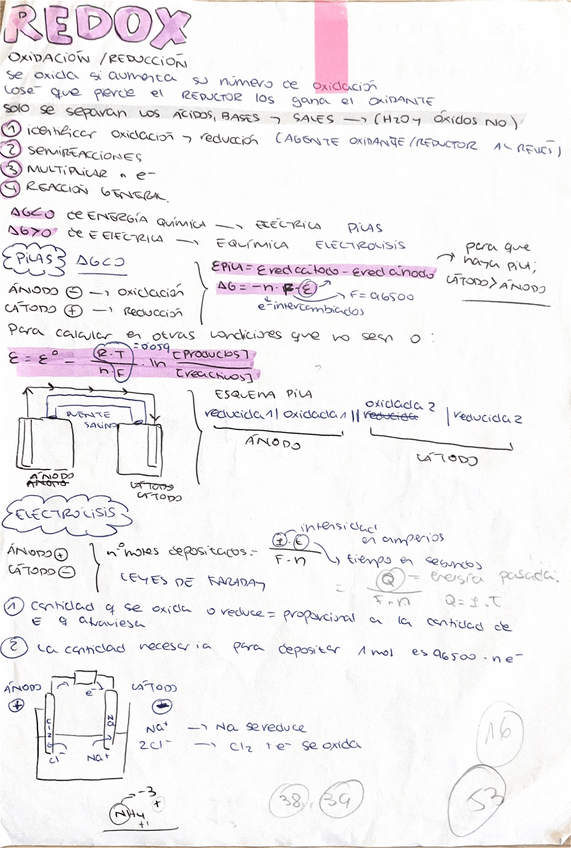 REDOX
OXIDACIÓN/REDUCCIÓN
se oxida si aumenta su número de oxidación
Los e⁻ que pierde el REDUCTOR los gana el OXIDANTE
SOLO SE SEPARAN LOS ÁCIDOS, BASES y SALES → (H2O y ÓXIDOS NO)
① identificar oxidación y reducción (AGENTE OXIDANTE/REDUCTOR AL REVÉS)
② SEMIREACCIONES
③ MULTIPLICAR n e⁻
④ REACCIÓN GENERAL.
ΔG<0 de ENERGÍA QUÍMICA → ELÉCTRICA PILAS
ΔG>0 de E ELÉCTRICA → EQUÍMICA ELECTROLISIS
PILAS ΔG<0
ÁNODO ⊖ → oxidación
CÁTODO ⊕ → Reducción
EPILA = E red cátodo - E red ánodo
ΔG = -n · F · E
→ F = 96500
e⁻ intercambiados
para que
haya pila;
CÁTODO > ÁNODO
Para calcular en otras condiciones que no sean 0:
E = E° - R·T / n F · ln [Productos] / [reactivos]
= 0'059
PUENTE
SALINO
ÁNODO
CÁTODO
CÁTODO
ESQUEMA PILA
reducida 1 | oxidada 1 || oxidada 2 reducida | reducida 2
ÁNODO
CÁTODO
ELECTROLISIS
ÁNODO ⊕
CÁTODO ⊖
nº moles depositados = I · t / F · n
intensidad
en amperios
tiempo en segundos
LEYES DE FARADAY
= Q / F·n = energía pasada.
Q = I · T
① cantidad q se oxida o reduce = proporcional a la cantidad de
E q atraviesa
② La cantidad necesaria para depositar 1 mol es 96500 · n e⁻
ÁNODO
⊕
CÁTODO
⊖
e⁻
Na
Cl⁻
Na⁺
Na⁺ → Na se reduce
2Cl⁻ → Cl2 + e⁻ se oxida
-3
+
NH4
+1
38, 39
16
53